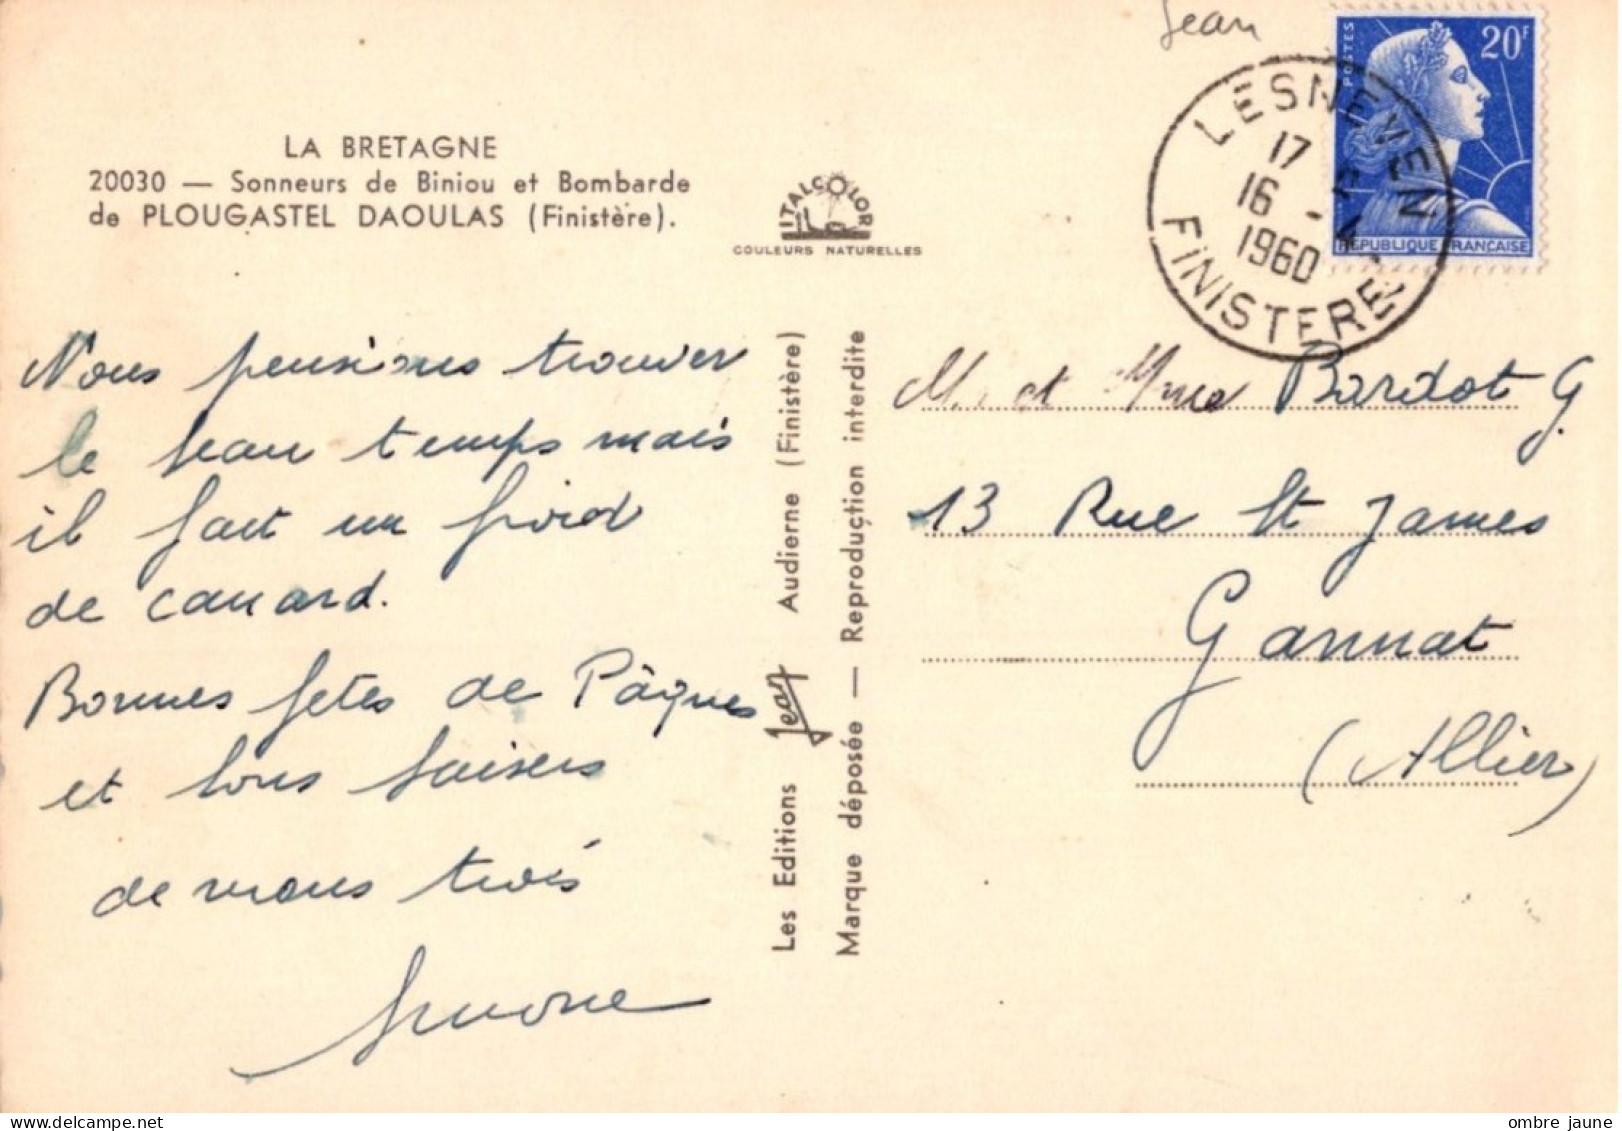 Jean
LA BRETAGNE
20030 — Sonneurs de Biniou et Bombarde
de PLOUGASTEL DAOULAS (Finistère).
ITALCOLOR
COULEURS NATURELLES
POSTES
20F
REPUBLIQUE FRANÇAISE
LESNEVEN
17
16 - 4
1960
FINISTERE
Nous pensions trouver
le beau temps mais
il fait un froid
de canard.
Bonnes fetes de Pâques
et bons baisers
de nous trois
Simone
Les Editions Jean Audierne (Finistère)
Marque déposée — Reproduction interdite
M. et Mme Bardot G.
13 Rue St James
Gannat
(Allier)
ombre jaune